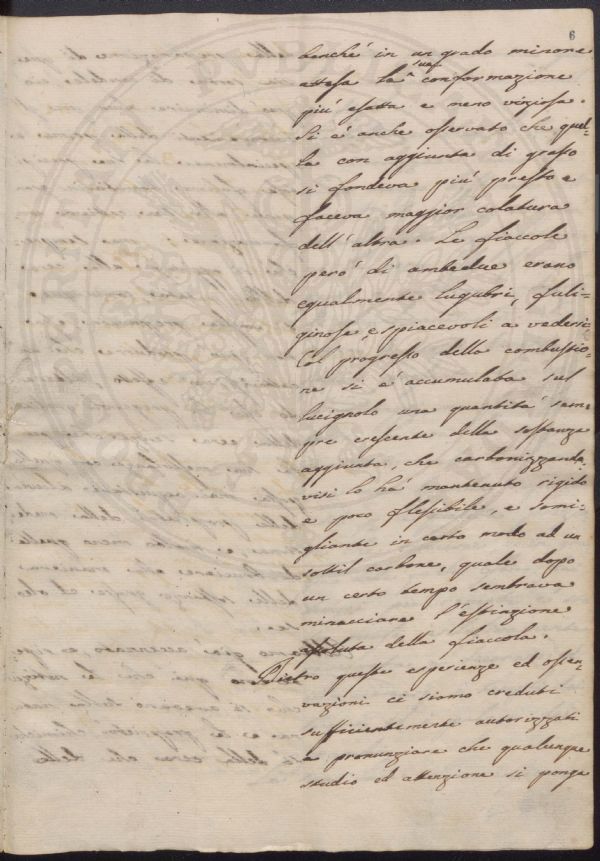 6
benché in un grado minore
attesa la sua conformazione
più esatta e meno viziosa.
Si è anche osservato che quel=
la con aggiunta di grasso
si fondeva più presto e
faceva maggior colatura
dell'altra. Le fiaccole
però di ambedue erano
egualmente lugubri, fuli=
ginose, e spiacevoli à vedersi.
Col progresso della combustio=
ne si e' accumulata sul
lucignolo una quantità sem=
pre crescente della sostanza
aggiunta, che carbonizzando=
visi lo ha' mantenuto rigido
e poco flessibile, e somi=
gliante in certo modo ad un
sottil carbone, quale dopo
un certo tempo sembrava
minacciare l'estinzione
assoluta della fiaccola.
Dietro queste esperienze ed osser=
vazioni ci siamo creduti
sufficientemente autorizzati
a pronunziare che qualunque
studio ed attenzione si ponga